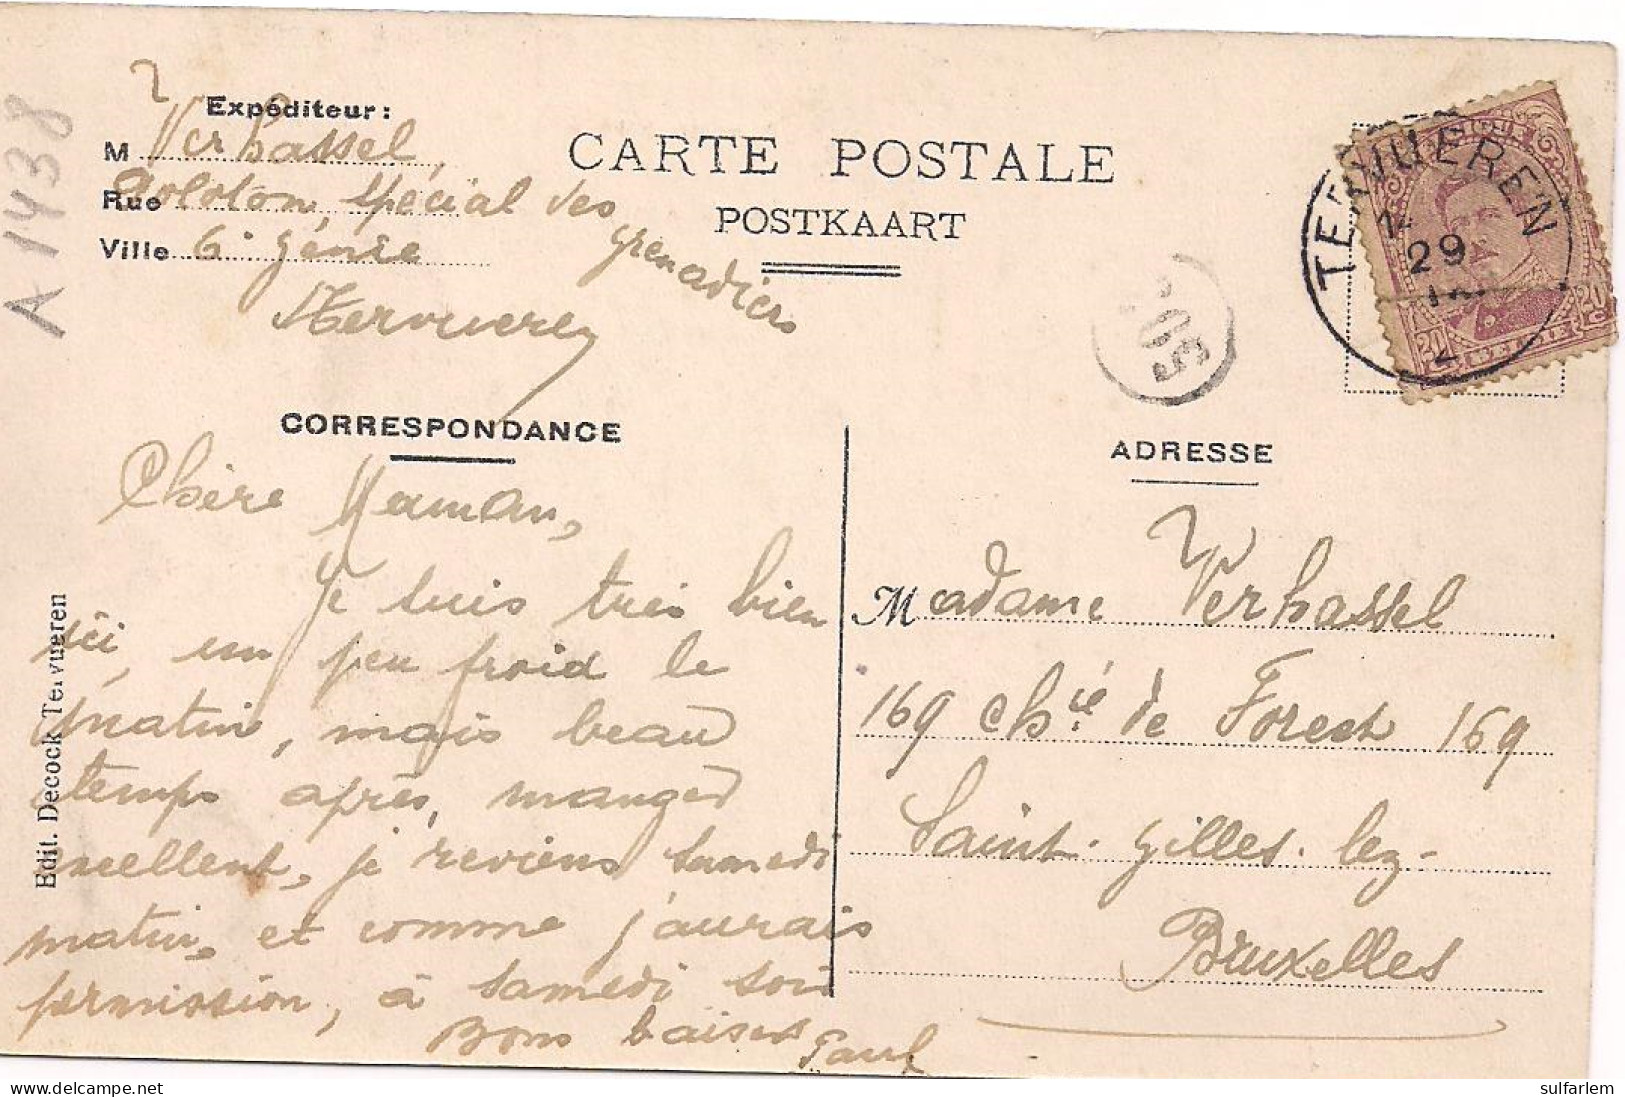 A 1438
Expéditeur:
M Verhassel,
Rue Peloton spécial des grenadiers
Ville 6e Génie
Tervueren
CARTE POSTALE
POSTKAART
TERVUEREN
29
20 20
BELGIE
CORRESPONDANCE
Chère Maman,
Je suis très bien
ici, un peu froid le
matin, mais beau
temps après, manger
excellent, je reviens samedi
matin, et comme j'aurais
permission, à samedi soir
Bons baisers
Paul
Edit. Decock Tervueren
ADRESSE
Madame Verhassel
169 Chie de Forest 169
Saint-Gilles-lez-
Bruxelles
sulfarlem